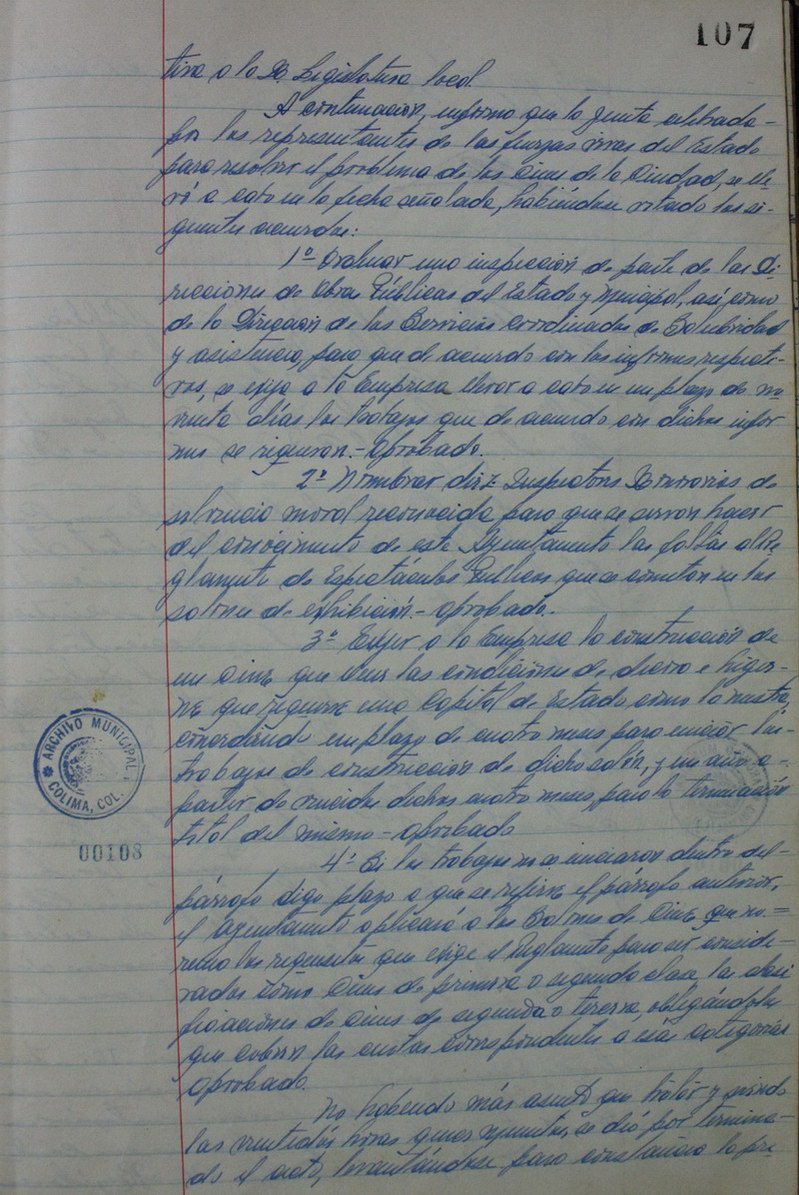 107
tiva a la H. Legislatura local.
A continuación, informo que la Junta celebrada
por los representantes de las fuerzas vivas del Estado
para resolver el problema de los Cines de la Ciudad, se lle-
vó a cabo en la fecha señalada, habiéndose votado los si-
guientes acuerdos:
1º Ordenar una inspección de parte de las Di-
recciones de Obras Públicas del Estado y Municipal, así como
de la Dirección de los Servicios Coordinados de Salubridad
y asistencia, para que de acuerdo con los informes respecti-
vos, se exija a la Empresa llevar a cabo en un plazo de no-
venta días los trabajos que de acuerdo con dichos infor
mes se requieran.- Aprobado.
2º Nombrar diez Inspectores Honorarios de
solvencia moral reconocida para que se sirvan hacer
del conocimiento de este Ayuntamiento las faltas al Re
glamento de Espectáculos Públicos que se cometan en los
salones de exhibición.- Aprobado.
3º Exigir a la Empresa la construcción de
un Cine que llene las condiciones de decoro e higie-
ne que requiere una Capital de Estado como la nuestra,
concediendo un plazo de cuatro meses para iniciar los
trabajos de construcción de dicho salón, y un año a-
partir de vencidos dichos cuatro meses, para la terminación
total del mismo - Aprobado
4º Si los trabajos no se iniciaran dentro del-
párrafo digo plazo a que se refiere el párrafo anterior,
el Ayuntamiento aplicará a los Salones de Cine que no=
reuna los requisitos que exige el Reglamento para ser conside-
rados como Cines de primera o segunda clase, las clasi
ficaciones de Cines de segunda o tercera, obligándolos
que cubran las cuotas correspondientes a esas categorías
Aprobado.
No habiendo más asunto que tratar y siendo
las veintidós horas quince minutos, se dió por termina-
do el acto, levantándose para constancia la pre
ARCHIVO MUNICIPAL
COLIMA, COL.
00108